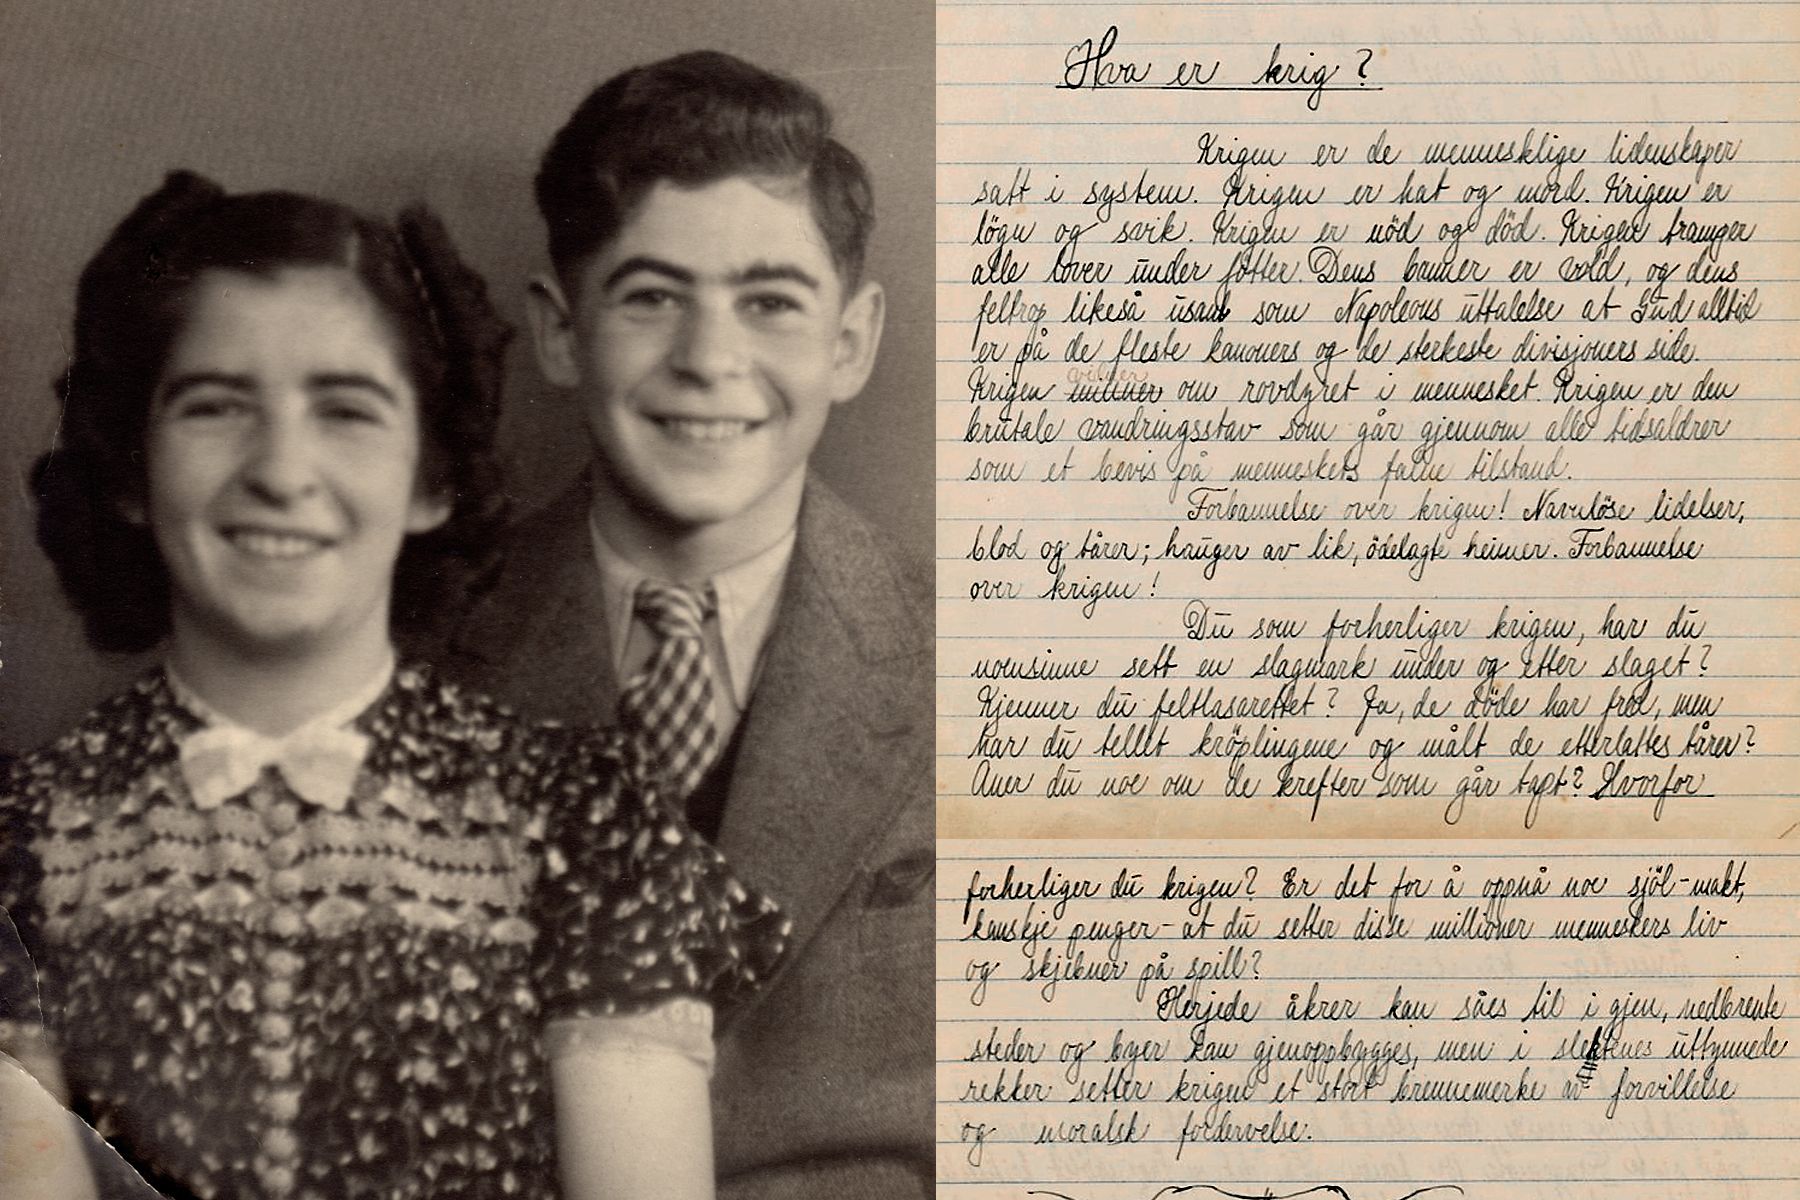 Hva er krig?
Krigen er de mennesklige lidenskaper
satt i system. Krigen er hat og mord. Krigen er
lögn og svik. Krigen er nöd og död. Krigen tramper
alle lover under fötter. Dens banner er vold, og dens
feltrop likeså usant som Napoleons uttalelse at Gud alltid
er på de fleste kanoners og de sterkeste divisjoners side.
vidner
Krigen om rovdyret i mennesket. Krigen er den
brutale vandringsstav som går gjennom alle tidsaldrer
som et bevis på menneskets falne tilstand.
Forbannelse over krigen! Navnlöse lidelser,
blod og tårer; hauger av lik, ödelagte heimer. Forbannelse
over krigen!
Du som forherliger krigen, har du
noensinne sett en slagmark under og etter slaget?
Kjenner du feltlasarettet? Ja, de döde har fred, men
har du tellet kröplingene og målt de etterlattes tårer?
Aner du noe om de krefter som går tapt? Hvorfor
forherliger du krigen? Er det for å oppnå noe sjöl-makt,
kanskje penger - at du setter disse millioner menneskers liv
og skjebner på spill?
Herjede åkrer kan såes til i gjen, nedbrente
steder og byer kan gjenoppbygges, men i slektenes uttynnede
rekker setter krigen et stort brennemerke av forvillelse
og moralsk fordervelse.